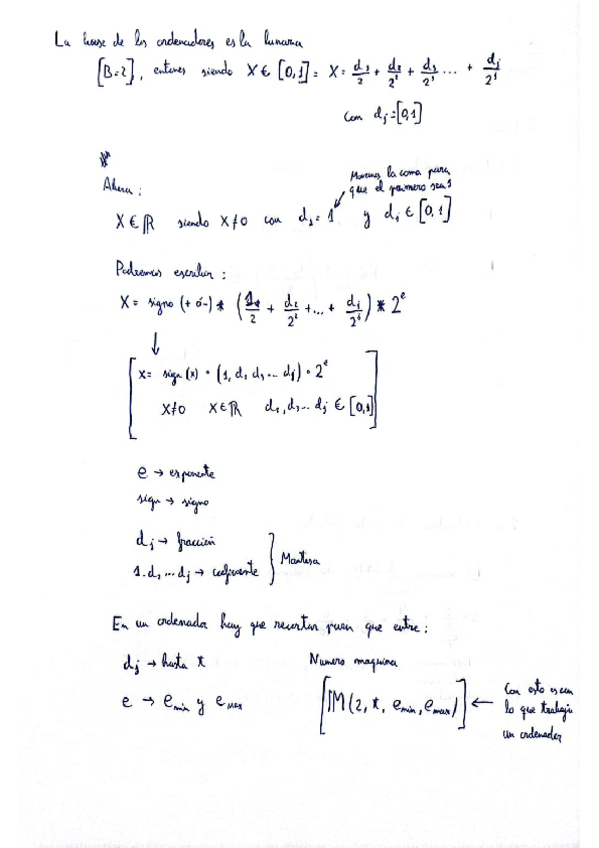 La base de los ordenadores es la binaria
[B=2], entonces siendo X ∈ [0,1] = X = d₁/2 + d₂/2² + d₃/2³ ... + dⱼ/2ʲ
con dⱼ=[0,1]
Ahora:
Movemos la coma para
que el primero sea 1
X ∈ ℝ siendo X≠0 con d₁ = 1 y dⱼ ∈ [0,1]
Podremos escribir:
X = signo (+ ó -) * (1/2 + d₂/2² + ... + dⱼ/2ʲ) * 2ᵉ
↓
x = sign (x) · (1, d₂ d₃ ... dⱼ) · 2ᵉ
x≠0 x ∈ ℝ d₂, d₃ ... dⱼ ∈ [0,1]
e → exponente
sign → signo
dⱼ → fracción
1.d₂ ... dⱼ → coeficiente } Mantisa
En un ordenador hay que recortar para que entre:
dⱼ → hasta t
Numero maquina
e → e min y e max
[𝕄(2, t, e min, e max)] ← Con esto es con
lo que trabaja
un ordenador